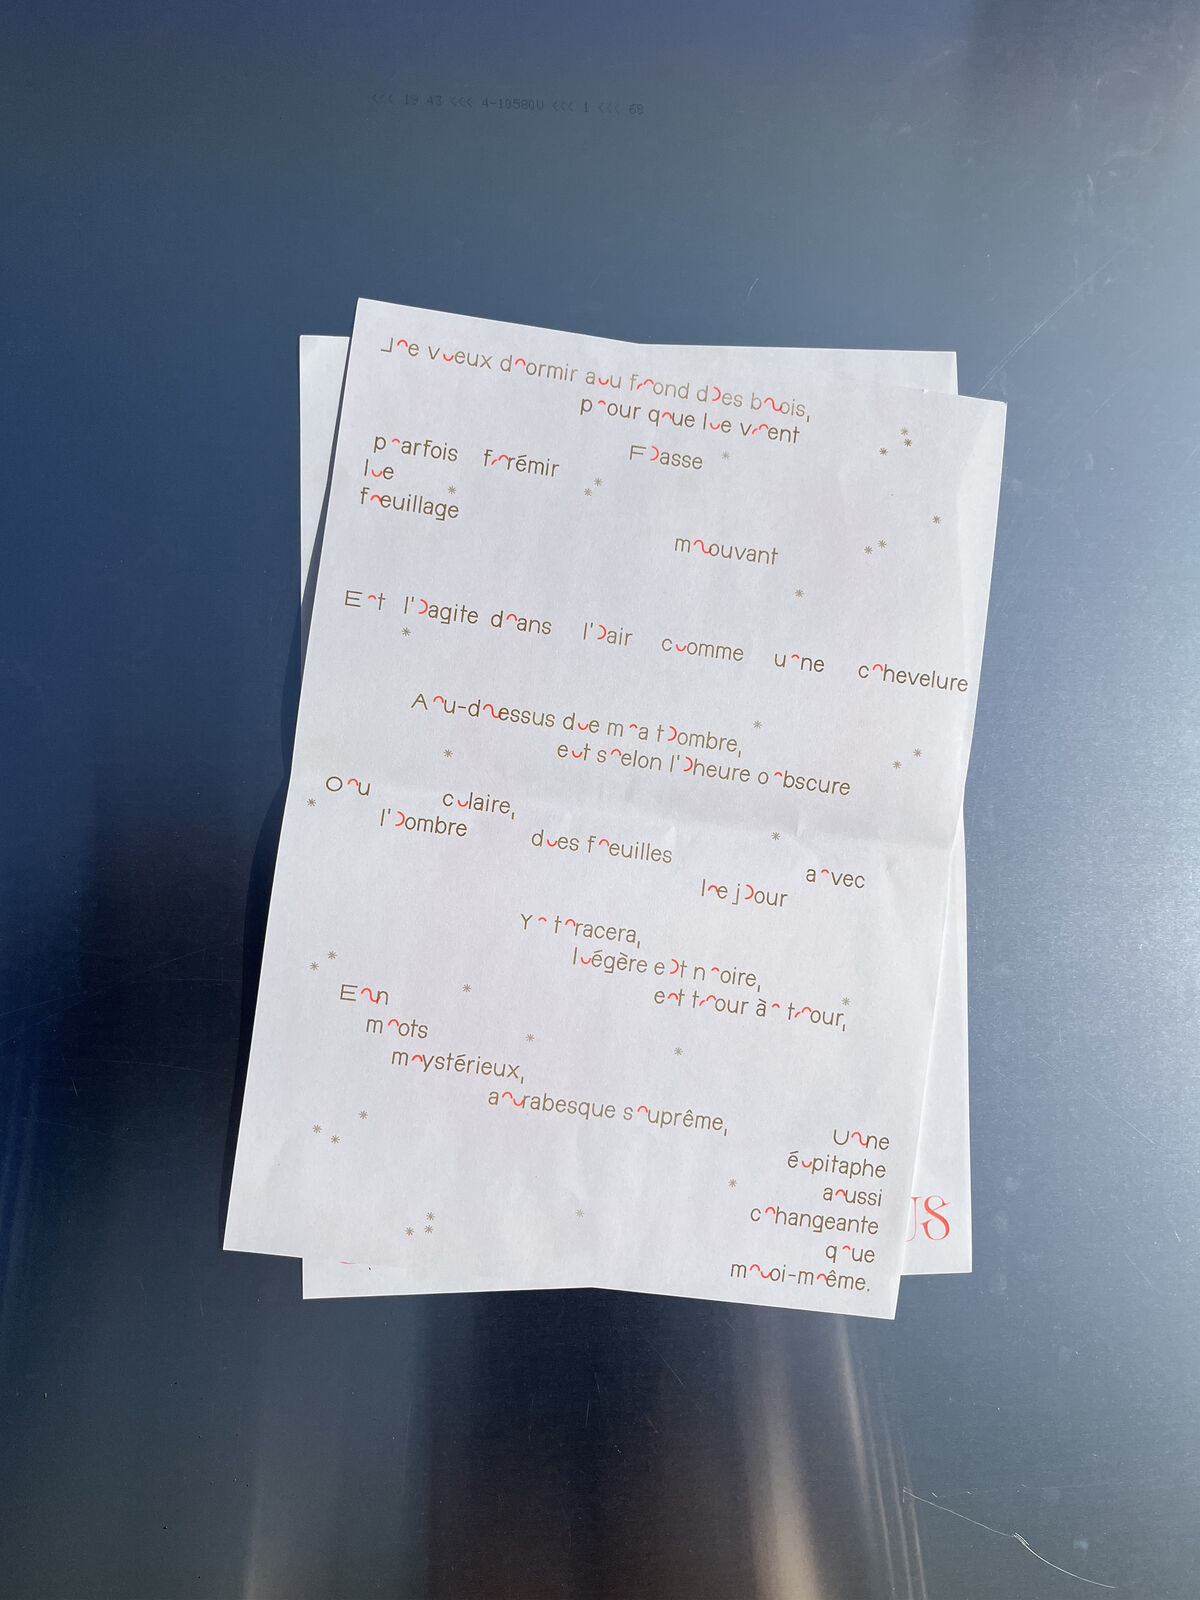 <<< 19 43 <<< 4-10580U <<< 1 <<< 68
Je veux dormir au fond des bois,
pour que le vent
Fasse
parfois frémir
le
feuillage
mouvant
Et l'agite dans l'air comme une chevelure
Au-dessus de ma tombre,
et selon l'heure obscure
Ou claire,
l'ombre
des feuilles
avec
le jour
Y tracera,
légère et noire,
et tour à tour,
En
mots
mystérieux,
arabesque suprême,
Une
épitaphe
aussi
changeante
que
moi-même.
US